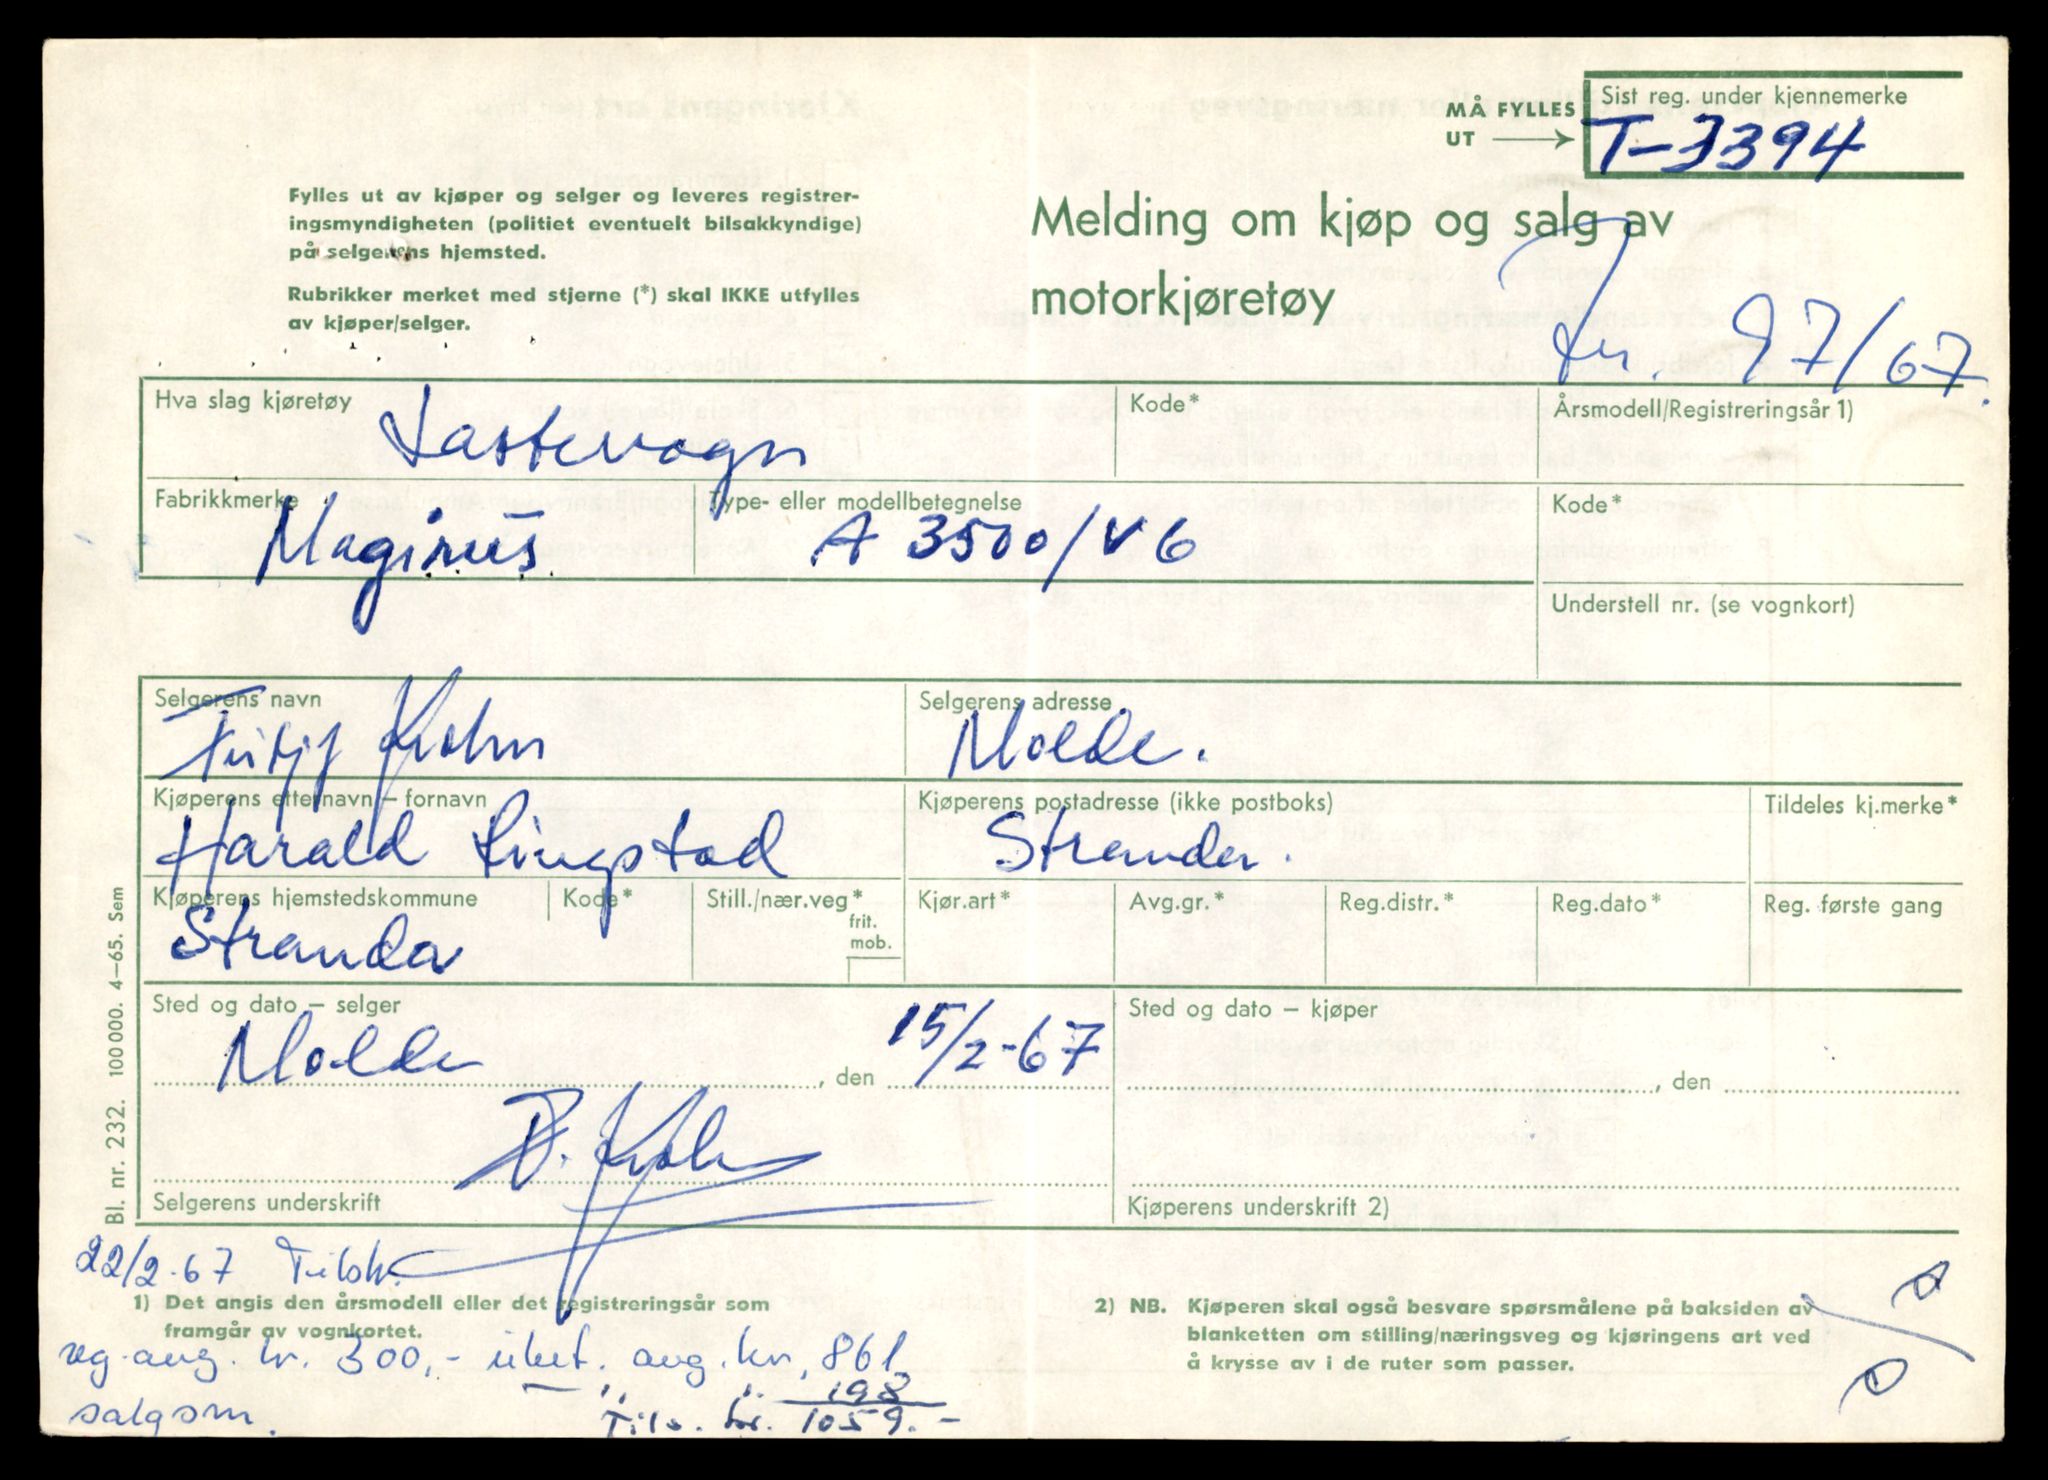 MÅ FYLLES UT
Sist reg. under kjennemerke
T-3394
Fylles ut av kjøper og selger og leveres registrer-
ingsmyndigheten (politiet eventuelt bilsakkyndige)
på selgerens hjemsted.
Rubrikker merket med stjerne (*) skal IKKE utfylles
av kjøper/selger.
Melding om kjøp og salg av
motorkjøretøy
97/67.
Hva slag kjøretøy
Lastevogn
Kode*
Årsmodell/Registreringsår 1)
Fabrikkmerke
Magirus
Type- eller modellbetegnelse
A 3500/V6
Kode*
Understell nr. (se vognkort)
Selgerens navn
Fritjf Krohn
Selgerens adresse
Molde.
Kjøperens etternavn – fornavn
Harald Ringstad
Kjøperens postadresse (ikke postboks)
Stranda.
Tildeles kj.merke*
Kjøperens hjemstedskommune
Stranda
Kode*
Still./nær.veg*
frit.
mob.
Kjør.art*
Avg.gr.*
Reg.distr.*
Reg.dato*
Reg. første gang
Sted og dato – selger
Molde, den 15/2-67
Sted og dato – kjøper
, den
F. Krohn
Selgerens underskrift
Kjøperens underskrift 2)
Bl. nr. 232. 100000. 4–65. Sem
22/2-67
1) Det angis den årsmodell eller det registreringsår som
framgår av vognkortet.
2) NB. Kjøperen skal også besvare spørsmålene på baksiden av
blanketten om stilling/næringsveg og kjøringens art ved
å krysse av i de ruter som passer.
avg. kr. 300,- ubet. avg. kr. 861
" " 198
salgsm. Tils. kr. 1059.-